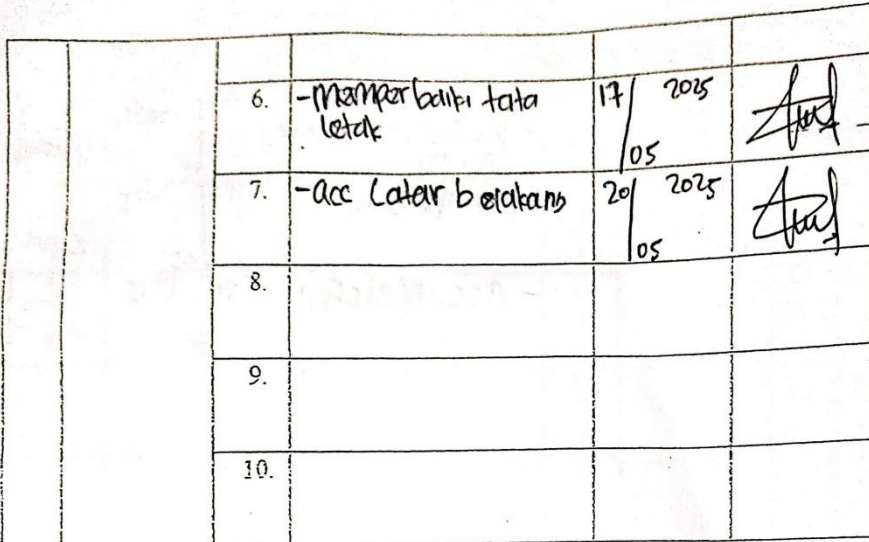 6. -Memperbaiki tata 17/05 2025
letak
7. -acc Latar belakang 20/05 2025
8.
9.
10.